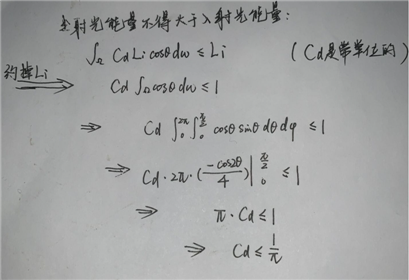 全射光能量不得大于入射光能量:
∫Ω Cd Li cosθ dω ≤ Li （Cd是带单位的）
约掉Li ⟹ Cd ∫Ω cosθ dω ≤ 1
⇒ Cd ∫₀^{2π} ∫₀^{π/2} cosθ sinθ dθ dφ ≤ 1
⇒ Cd · 2π · (-cos2θ/4) |₀^{π/2} ≤ 1
⇒ π · Cd ≤ 1
⇒ Cd ≤ 1/π